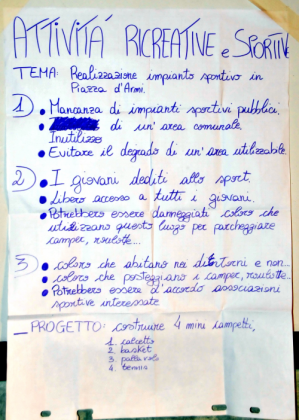 ATTIVITÁ RICREATIVE e SPORTIVE
TEMA: Realizzazione impianto sportivo in
Piazza d'Armi.
1) • Mancanza di impianti sportivi pubblici.
• di un'area comunale.
Inutilizzo
• Evitare il degrado di un'area utilizzabile.
2) • I giovani dediti allo sport.
• Libero accesso a tutti i giovani.
• Potrebbero essere danneggiati coloro che
utilizzano questo luogo per parcheggiare
camper, roulotte...
3) • coloro che abitano nei dintorni e non...
• coloro che posteggiano i camper, roulotte...
• Potrebbero essere d'accordo associazioni
sportive interessate
_ PROGETTO: costruire 4 mini campetti,
1. calcetto
2. basket
3. pallavolo
4. tennis